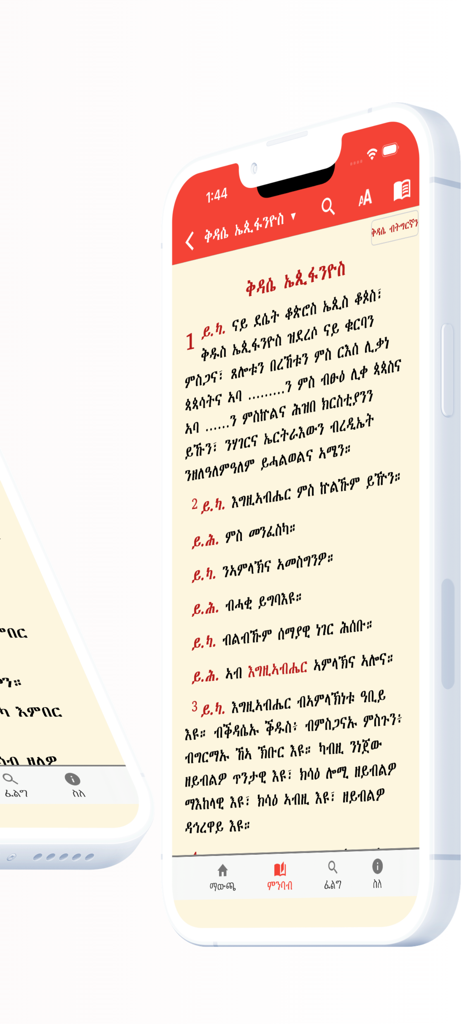 1:44
ቅዳሴ ኤጲፋንዮስ
AA
ቅዳሴ ብትግርኛን
ቅዳሴ ኤጲፋንዮስ
1 ይ.ካ. ናይ ደሴት ቆጵሮስ ኤጲስ ቆጶስ፣
ቅዱስ ኤጲፋንዮስ ዝደረሶ ናይ ቁርባን
ምስጋና፣ ጸሎቱን በረኸቱን ምስ ርእሰ ሊቃነ
ጳጳሳትና ኣባ .........ን ምስ ብፁዕ ሊቀ ጳጳስና
ኣባ ......ን ምስኵልና ሕዝበ ክርስቲያንን
ይኹን፣ ንሃገርና ኤርትራእውን ብረዲኤት
ንዘለዓለምዓለም ይሓልወልና ኣሜን።
2 ይ.ካ. እግዚኣብሔር ምስ ኵልኹም ይዅን።
ይ.ሕ. ምስ መንፈስካ።
ይ.ካ. ንኣምላኽና ኣመስግንዎ።
ይ.ሕ. ብሓቂ ይግባእዩ።
ይ.ካ. ብልብኹም ሰማያዊ ነገር ሕሰቡ።
ይ.ሕ. ኣብ እግዚኣብሔር ኣምላኽና ኣሎና።
3 ይ.ካ. እግዚኣብሔር ብኣምላኽነቱ ዓቢይ
እዩ። ብቕዳሴኡ ቕዱስ፥ ብምስጋናኡ ምስጉን፥
ብግርማኡ ኸኣ ኽቡር እዩ። ካብዚ ንነጀው
ዘይብልዎ ጥንታዊ እዩ፣ ክሳዕ ሎሚ ዘይብልዎ
ማእከላዊ እዩ፣ ክሳዕ ኣብዚ እዩ፣ ዘይብልዎ
ዳኅረዋይ እዩ።
ማውጫ
ምንባብ
ፈልግ
ስለ
እምበር
ፈልግ
ስለ